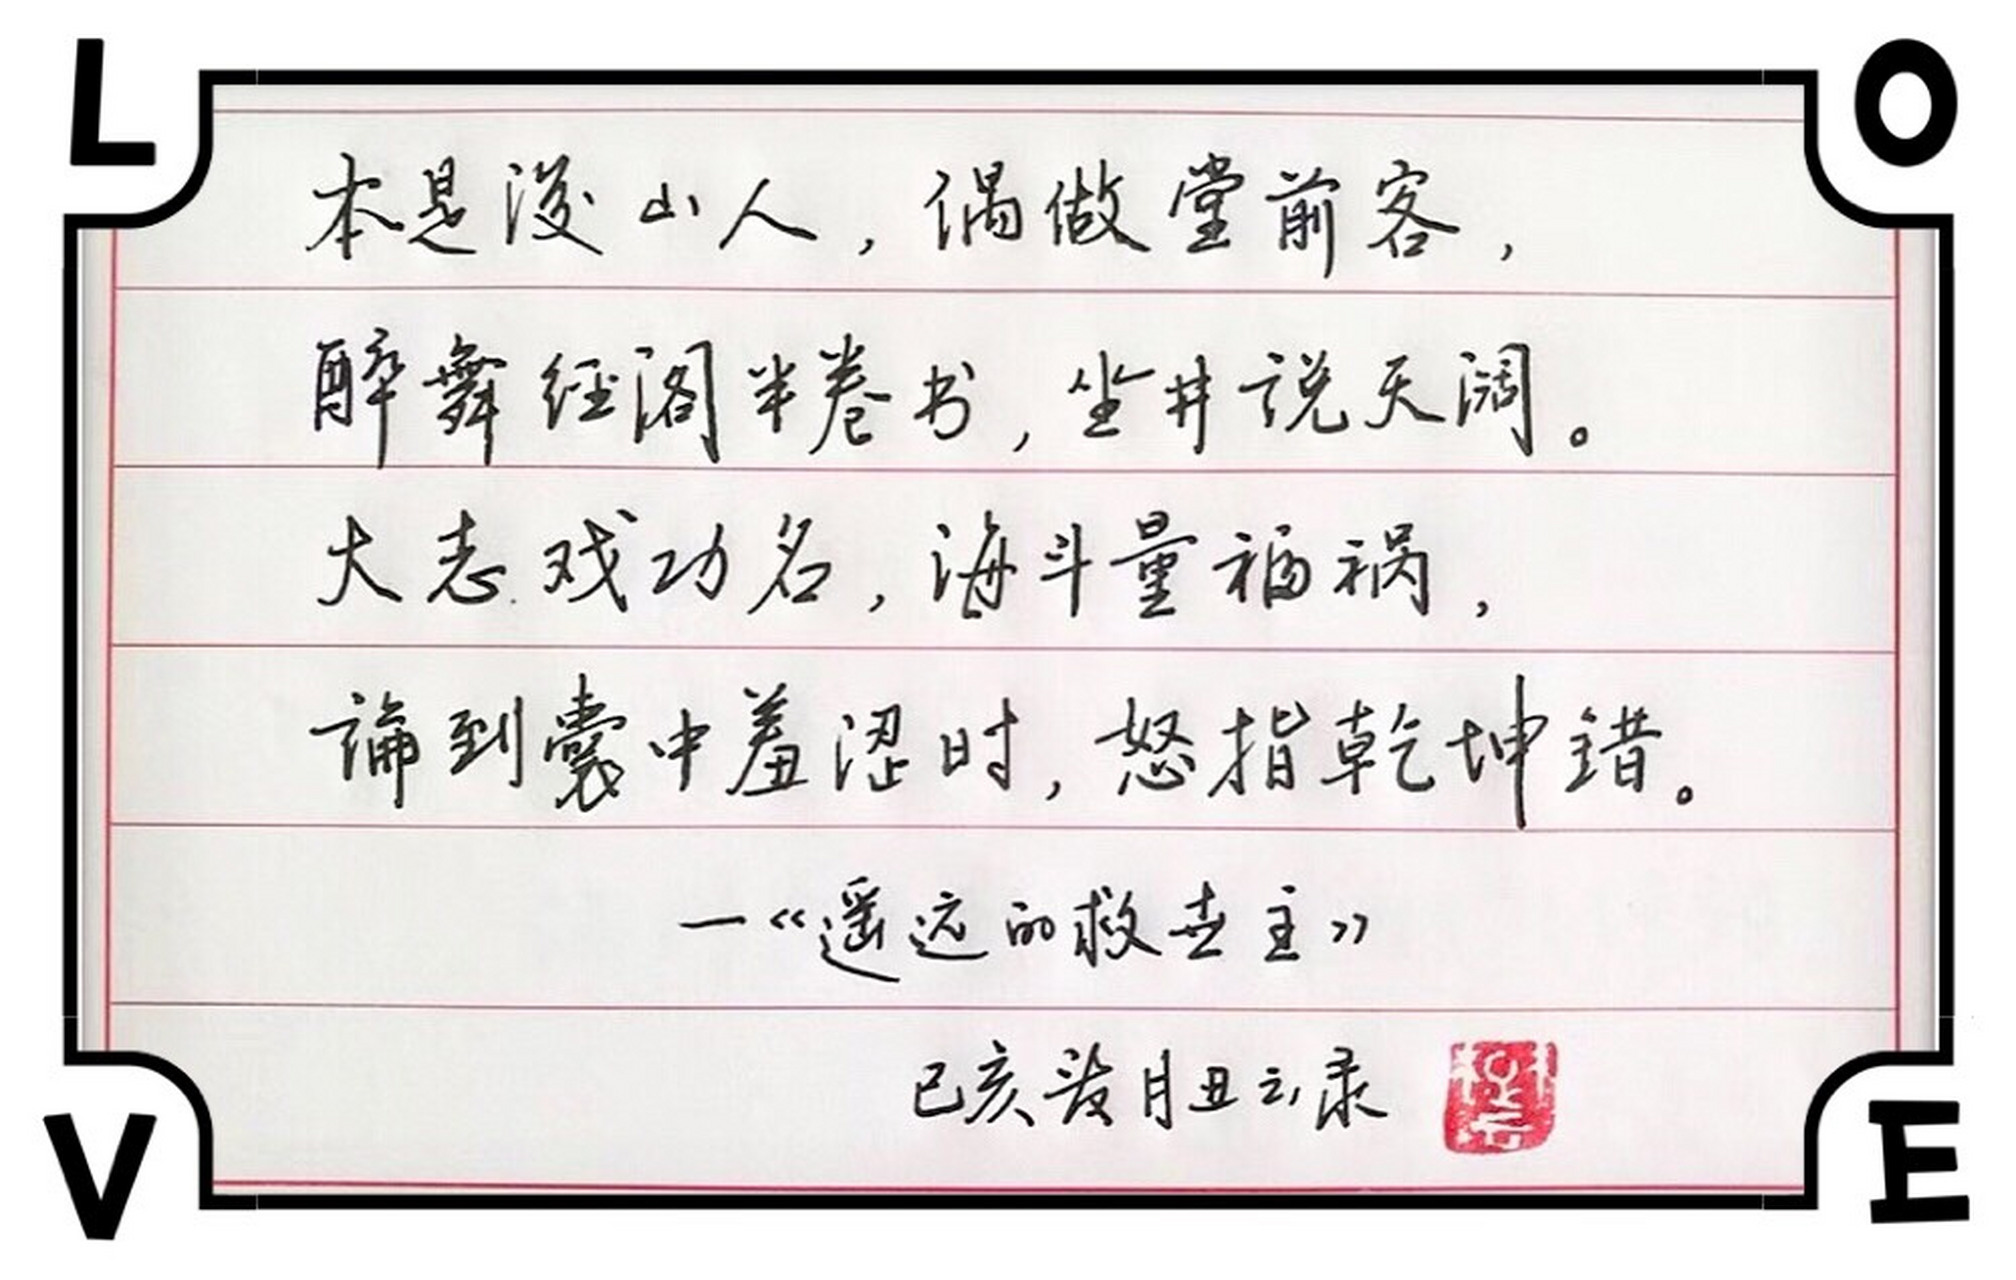 L O
本是後山人，偶做堂前客，
醉舞经阁半卷书，坐井说天阔。
大志戏功名，海斗量福祸，
論到囊中羞涩时，怒指乾坤错。
—《遥远的救世主》
己亥 月 云录
V E